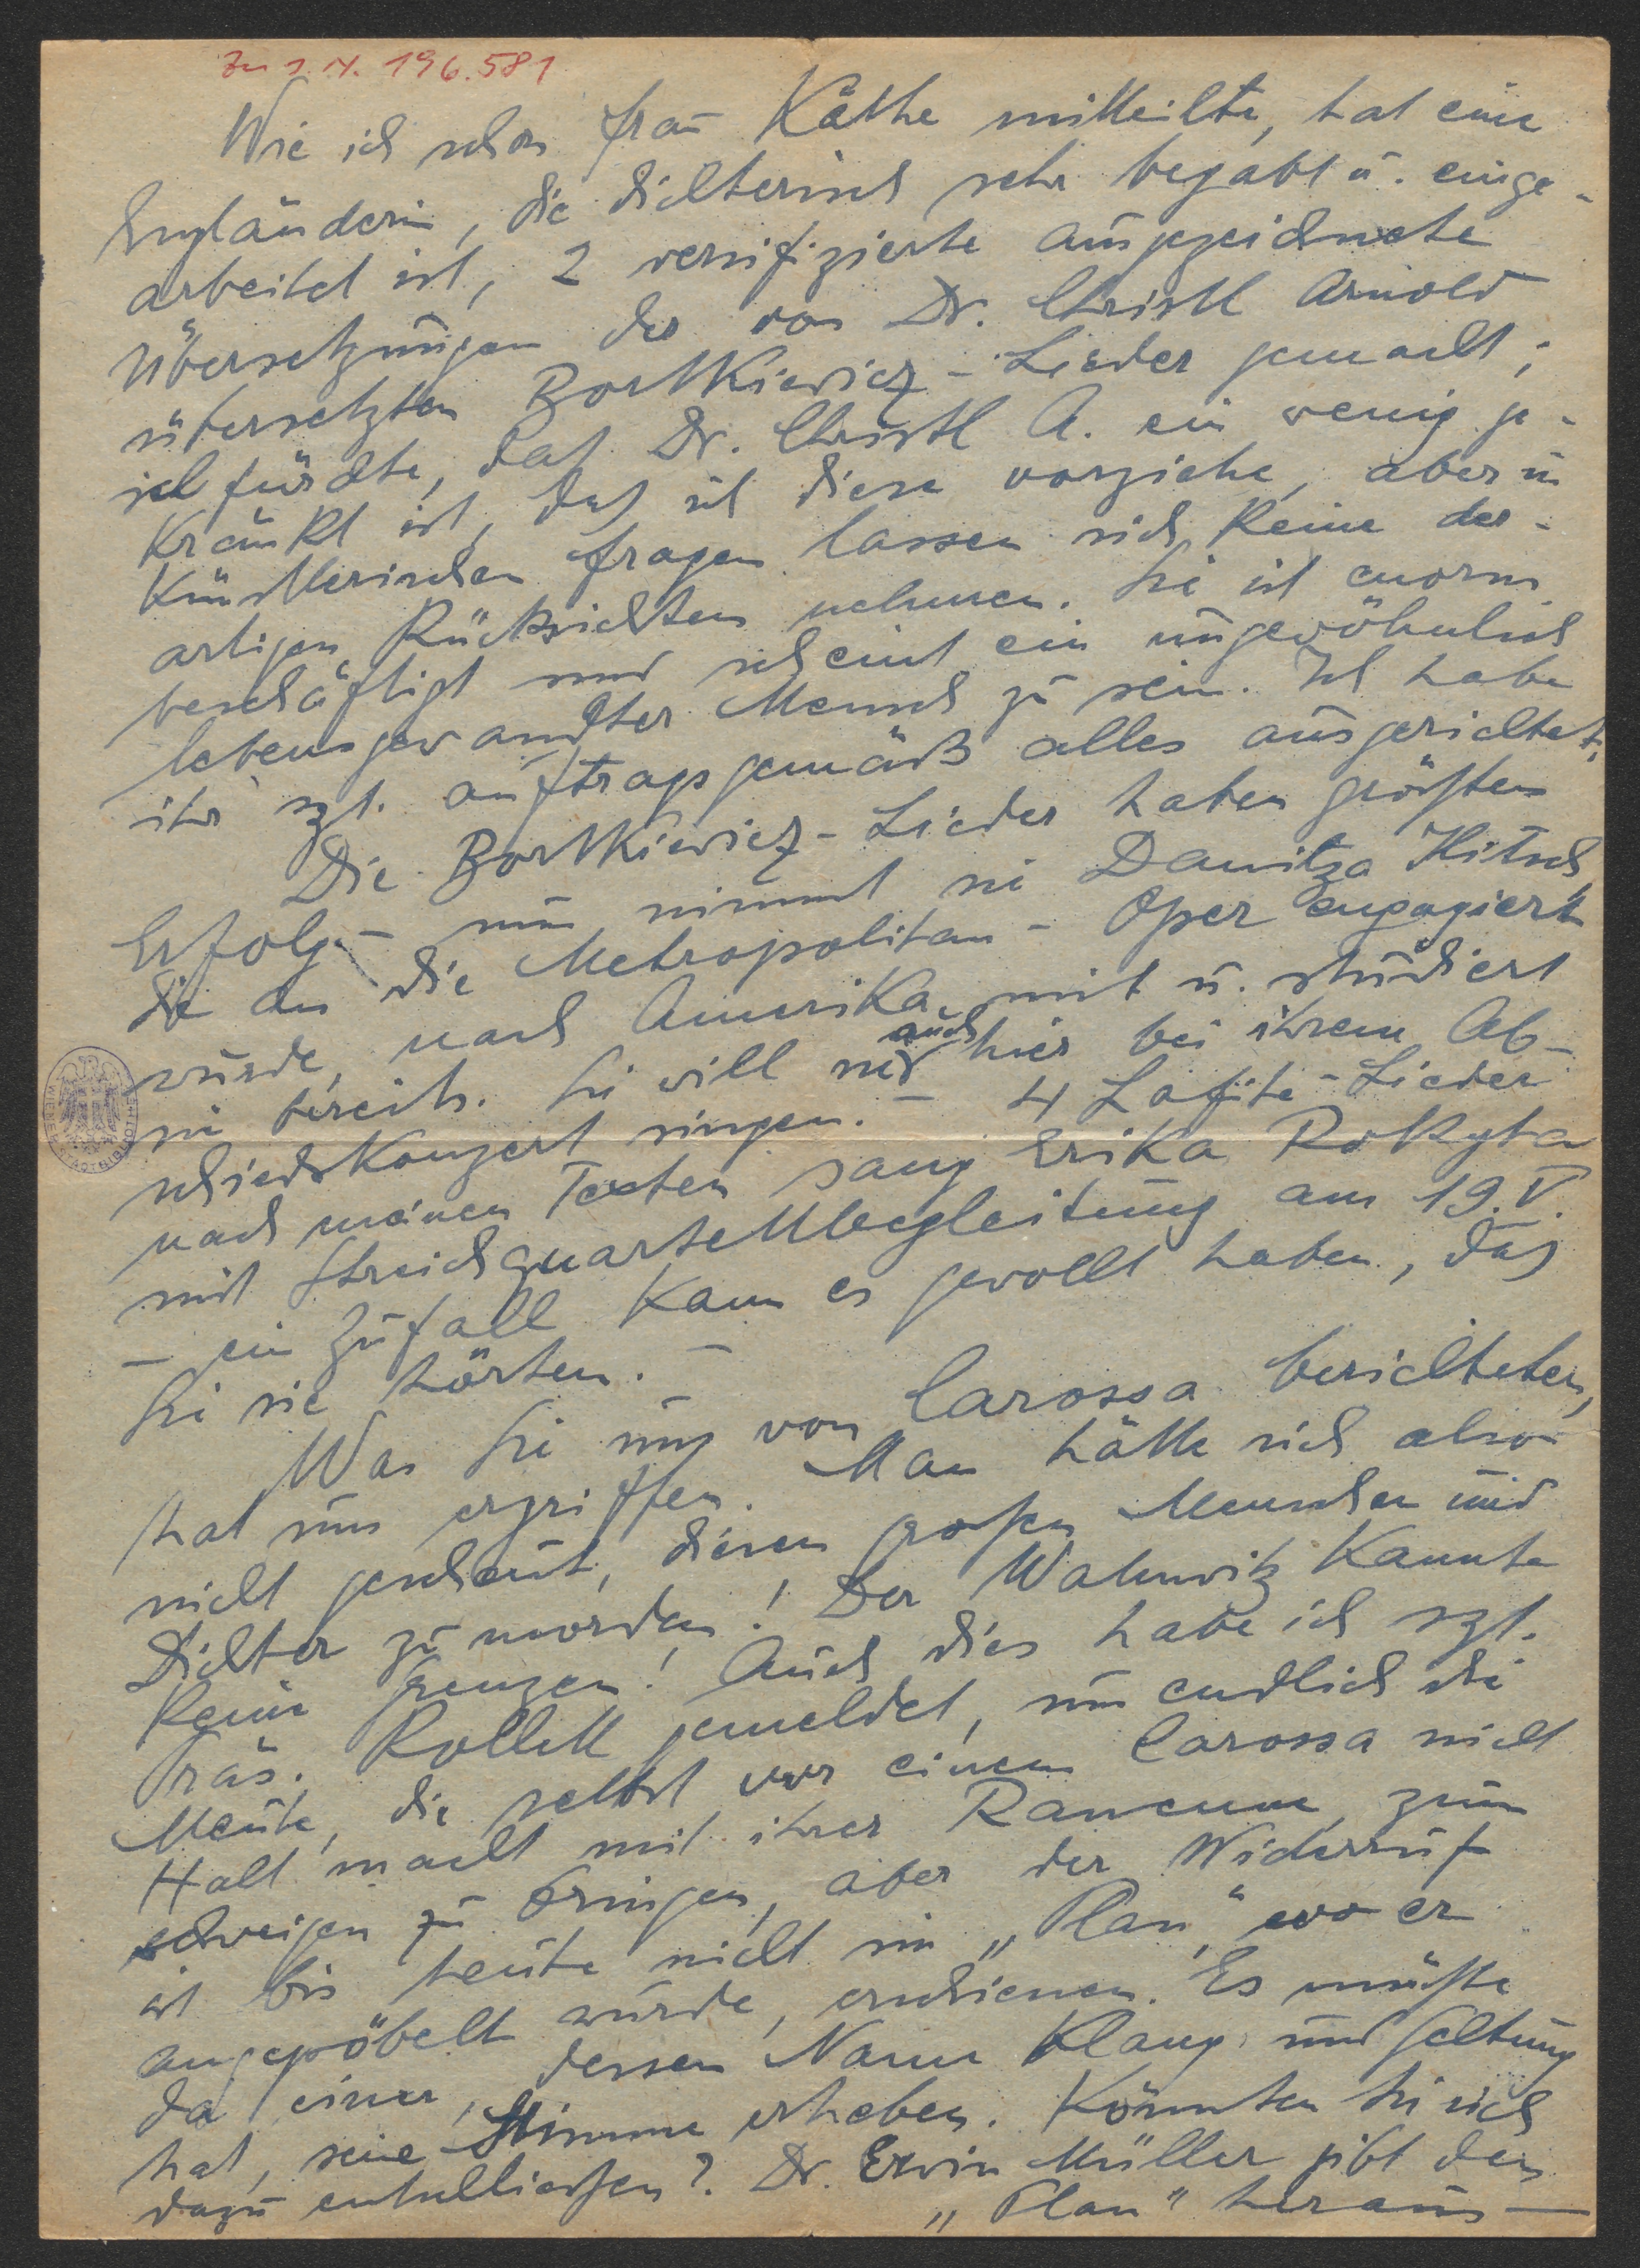 Zu I. N. 196.581
Wie ich schon Frau Käthe mitteilte, hat eine
Engländerin, die dichterisch sehr begabt u. einge-
arbeitet ist, 2 versifizierte ausgezeichnete
Übersetzungen der von Dr. Christl Arnold
übersetzten Bortkiewicz-Lieder gemacht;
ich fürchte, daß Dr. Christl A. ein wenig ge-
kränkt ist, daß ich diese vorziehe, aber in
künstlerischen Fragen lassen sich keine der-
artigen Rücksichten nehmen. Sie ist enorm
beschäftigt und scheint ein ungewöhnlich
lebensgewandter Mensch zu sein. Ich habe
ihr sgl. auftragsgemäß alles ausgerichtet.
Die Bortkiewicz-Lieder haben größten
Erfolg – nun nimmt sie Danitza Ilitsch,
die an die Metropolitan-Oper engagiert
wurde, nach Amerika mit u. studiert
sie bereits. Sie will sie auch hier bei ihrem Ab-
schiedskonzert singen. – 4 Lafite-Lieder
nach meinen Texten sang Erika Rokyta
mit Streichquartettbegleitung am 19. V.
– ein Zufall kann es gewollt haben, daß
Sie sie hörten. –
Was Sie uns von Carossa berichteten,
hat uns ergriffen. Man hätte sich also
nicht gescheut, diesen großen Menschen und
Dichter zu morden! Der Wahnwitz kannte
keine Grenzen! Auch dies habe ich sgl.
Präs. Rollett gemeldet, um endlich die
Meute, die selbst vor einem Carossa nicht
Halt macht mit ihrer Rancune, zum
schweigen zu bringen, aber der Widerruf
ist bis heute nicht im „Plan", wo er
angepöbelt wurde, erschienen. Es müßte
da einer, dessen Name Klang und Geltung
hat, seine Stimme erheben. Könnten Sie sich
dazu entschließen? Dr. Erwin Müller gibt den
„Plan" heraus –